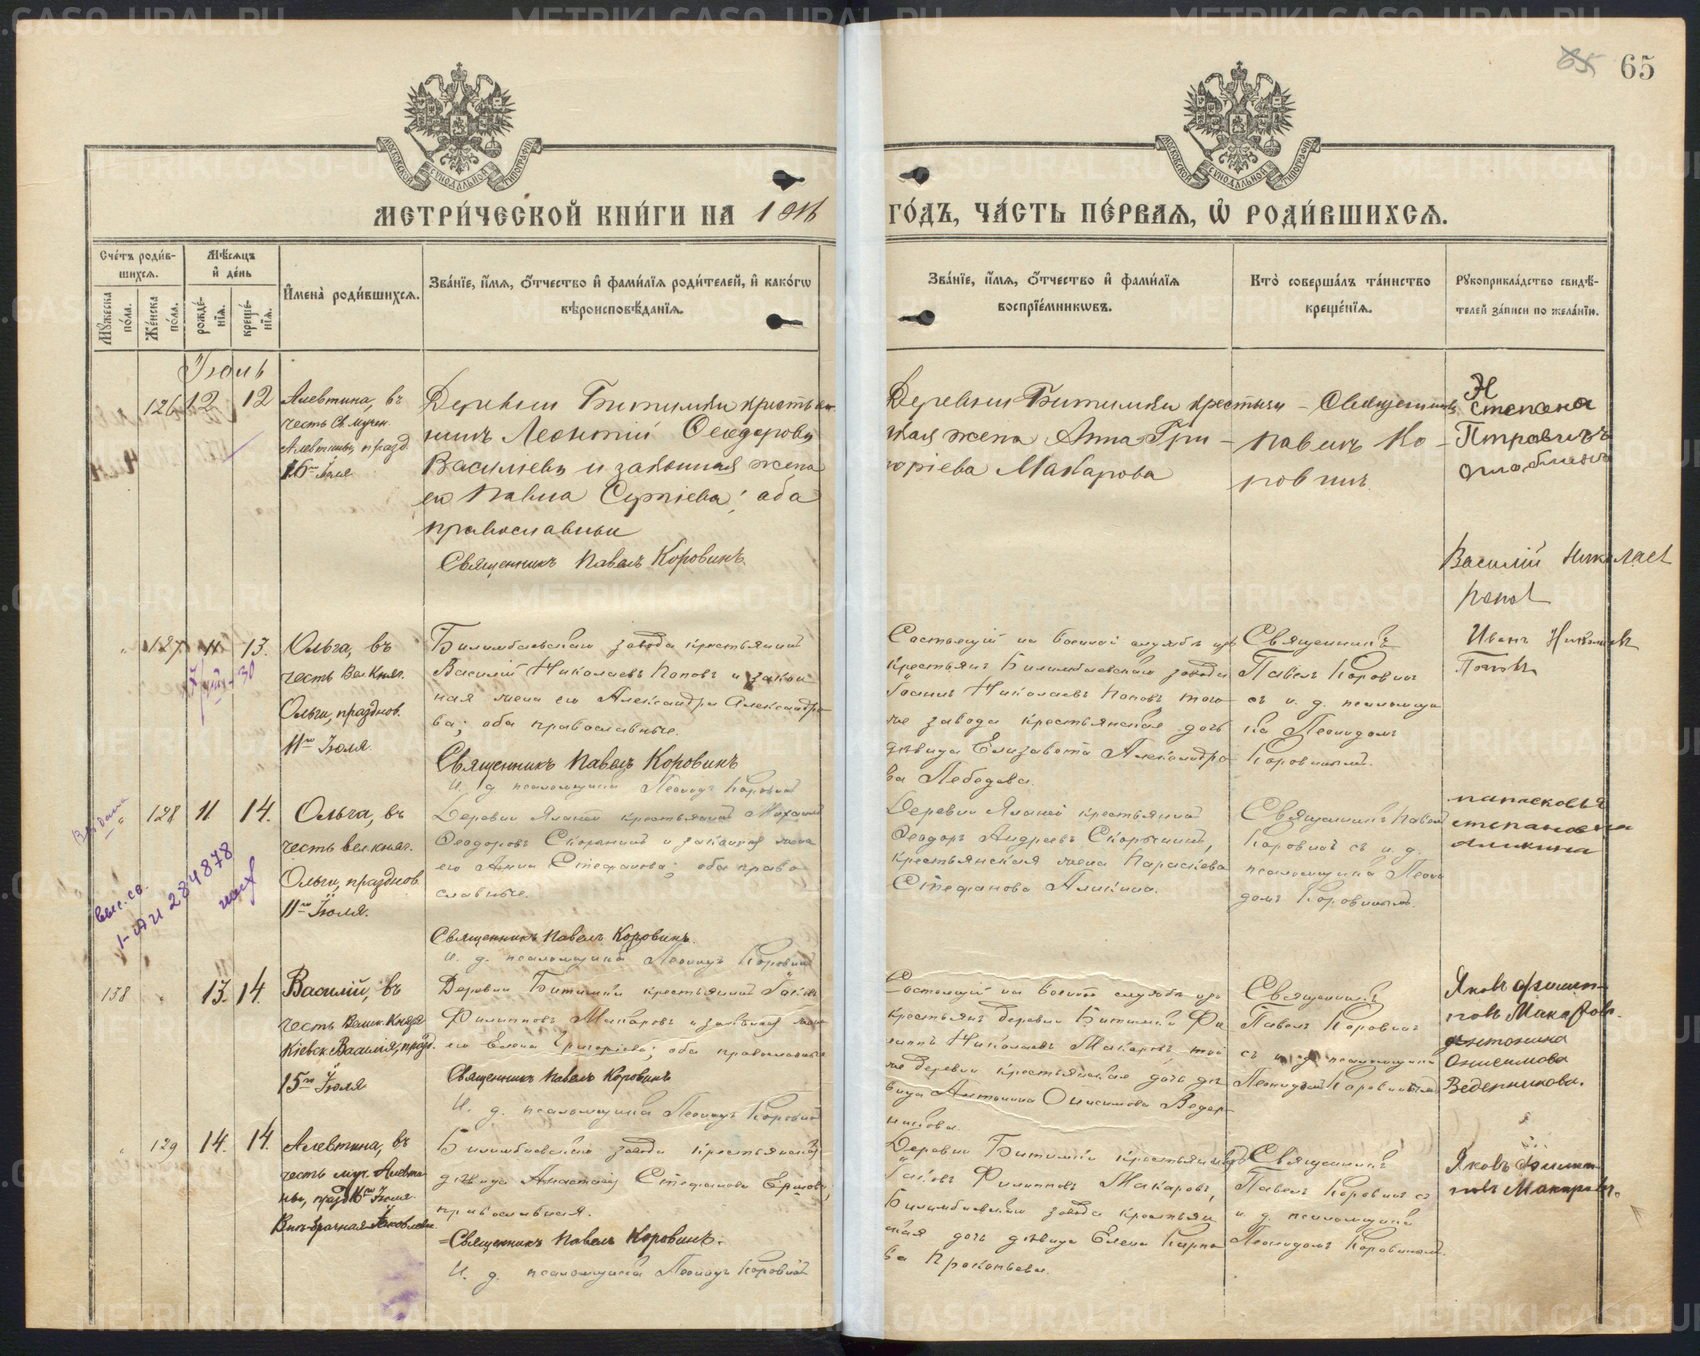 65
МЕТРИ́ЧЕСКОЙ КНИ́ГИ НА 1916 ГО́ДЪ, ЧА́СТЬ ПЕ́РВАЯ, Ѡ РОДИ́ВШИХСЯ.
Сче́тъ роди́в-
шихся.
Мꙋ́жеска по́ла.
Же́нска по́ла.
Мѣ́сяцъ
и҆ де́нь
рожде́-
нїя.
креще́-
нїя.
И҆мена̀ роди́вшихся.
Зва́нїе, и҆́мя, ѻ҆́тчество и҆ фами́лїя роди́телей, и҆ како́гѡ
вѣроисповѣ́данїя.
Зва́нїе, и҆́мя, ѻ҆́тчество и҆ фами́лїя
воспрїе́мникѡвъ.
Кто̀ соверша́лъ та́инство
креще́нїя.
Рꙋкоприкла́дство свидѣ́-
телей за́писи по жела́нїю.
Іюль
126 12 12
Алевтина, въ
честь Св. мучен.
Алевтины, празд.
16го Іюля
Деревни Битимки крестья-
нинъ Леонтій Ѳеодоровъ
Василіевъ и законная жена
его Павла Сергіева; оба
православныи
Священникъ Павелъ Коровинъ.
Деревни Битимки крестьян-
ская жена Анна Гри-
горіева Макарова
Священникъ
Павелъ Ко-
ровинъ
Степана
Петровичъ
127 11 13.
Ольга, въ
честь Вел. Княг.
Ольги, празднов.
11го Іюля.
Билимбаевскаго завода крестьянинъ
Василій Николаевъ Поповъ и закон-
ная жена его Александра Александро-
ва; оба православные.
Священникъ Павелъ Коровинъ
И. д. псаломщика Леонидъ Коровинъ
Состоящій на военной службѣ изъ
крестьянъ Билимбаевскаго завода
Іоаннъ Николаевъ Поповъ, того
же завода крестьянская дочь
дѣвица Елизавета Александро-
ва Лебедева.
Священникъ
Павелъ Коровинъ
съ и. д. псаломщи-
ка Леонидомъ
Коровинымъ.
Василій Николаев
Попов
Иванъ Николаевъ
Поповъ
128 11 14.
Ольга, въ
честь вел. княг.
Ольги, празднов.
11го Іюля.
крестьянинъ Михаилъ
Ѳеодоровъ Скорынинъ и законная жена
его Анна Стефанова; оба право-
славные.
Священникъ Павелъ Коровинъ.
И. д. псаломщика Леонидъ Коровинъ
крестьянинъ
Ѳеодоръ Андреевъ Скорынинъ,
крестьянская жена Параскева
Стефанова Аликина.
Священникъ Павелъ
Коровинъ съ и. д.
псаломщика Леони-
домъ Коровинымъ.
степановна
аликина
1-АИ 284878
138 13. 14.
Василій, въ
честь Велик. Князя
Кіевск. Василія, празд.
15го Іюля
Деревни Битимки крестьянинъ Іаковъ
Филипповъ Макаровъ и законная жена
его Елена Григоріева; оба православные
Священникъ Павелъ Коровинъ
И. д. псаломщика Леонидъ Коровинъ
Состоящій на военной службѣ изъ
крестьянъ деревни Битимки Фи-
липпъ Николаевъ Макаровъ, той
же деревни крестьянская дочь дѣ-
вица Антонина Онисимова Ведер-
никова.
Священникъ
Павелъ Коровинъ
съ и. д. псаломщика
Леонидомъ Коровинымъ
Яковъ Филип-
повъ Макаровъ.
Антонина
Онисимова
Ведерникова.
129 14. 14.
Алевтина, въ
честь муч. Алевти-
ны, празд. 16го Іюля
Внѣбрачная
Билимбаевскаго завода крестьянская
дѣвица Анастасія Стефанова Ершова,
православная.
Священникъ Павелъ Коровинъ.
И. д. псаломщика Леонидъ Коровинъ
Деревни Битимки крестьянинъ
Іаковъ Филипповъ Макаровъ,
Билимбаевскаго завода крестьян-
ская дочь дѣвица Елена Карпо-
ва Прокопьева.
Священникъ
Павелъ Коровинъ съ
и. д. псаломщика
Леонидомъ Коровинымъ.
Яковъ Филип-
повъ Макаровъ.
METRIKI.GASO-URAL.RU